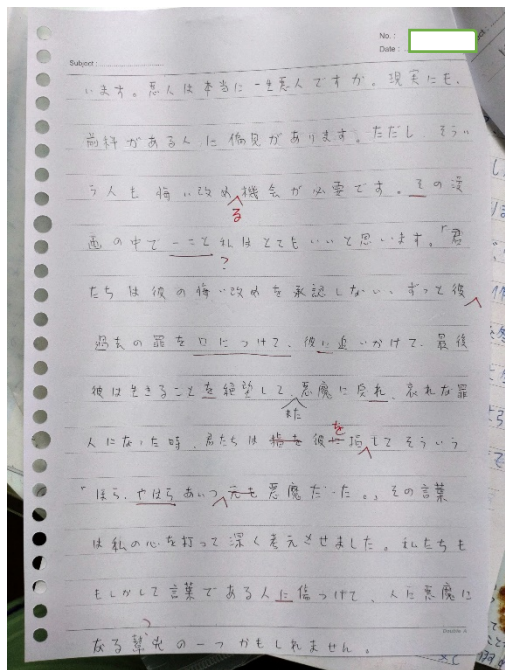 No. :
Date :
Subject :
います。悪人は本当に一生悪人ですか。現実にも、
前科がある人に偏見があります。ただし、そうい
う人も悔い改め機会が必要です。その漫
る
画の中で一こと私はとてもいいと思います。「君
?
たちは彼の悔い改めを承認しない、ずっと彼
過去の罪を口につけて、彼に追いかけて、最後
彼は生きることを絶望して、悪魔に戻れ、哀れな罪
また
を
人になった時、君たちは指を彼に指してそういう
「ほら、やはらあいつ元も悪魔だった。」その言葉
は私の心を打って深く考えさせました。私たちも
もしかして言葉である人に傷つけて、人に悪魔に
なる の一つかもしれません。
Double A